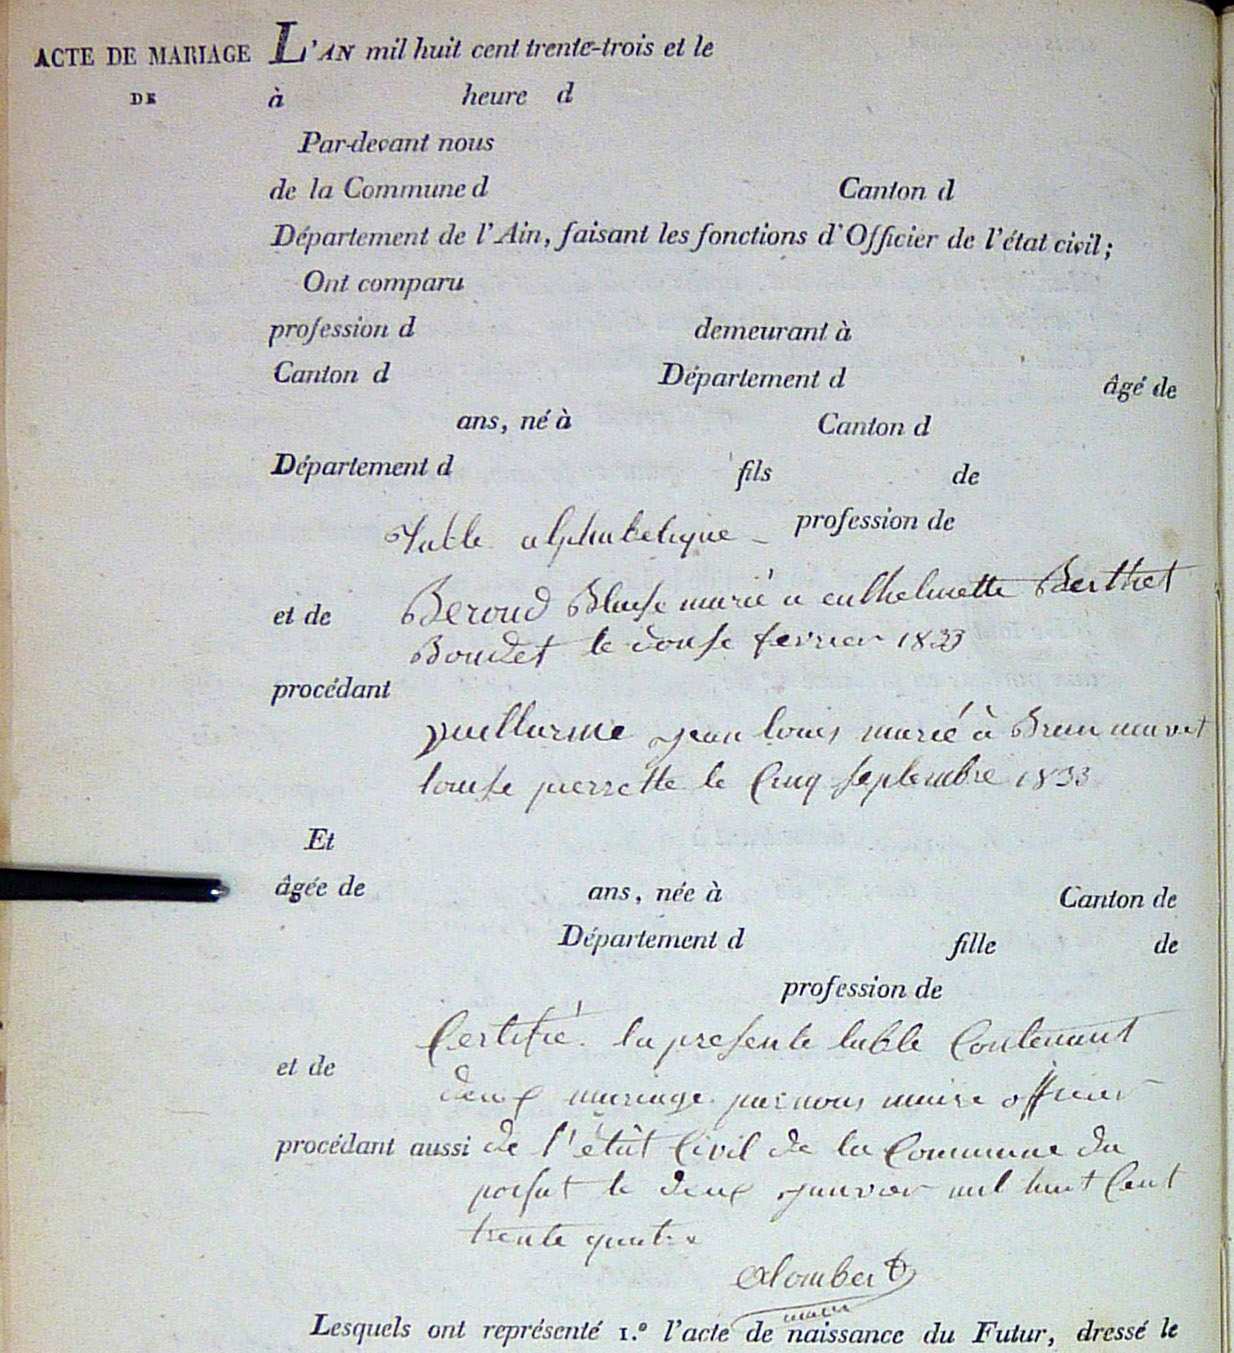 ACTE DE MARIAGE L'AN mil huit cent trente-trois et le
DE à heure d
Par-devant nous
de la Commune d Canton d
Département de l'Ain, faisant les fonctions d'Officier de l'état civil;
Ont comparu
profession d demeurant à
Canton d Département d âgé de
ans, né à Canton d
Département d fils de
Table alphabetique - profession de
et de Beroud Blaise marié a Berthet
Boudet le douse fevrier 1833
procédant
guillarme jean louis marié à Brun
louise pierrette le Cinq septembre 1833
Et
âgée de ans, née à Canton de
Département d fille de
profession de
Certifié la presente table Contenant
et de deux mariage par nous maire officier
procédant aussi de l'état Civil de la Commune du
le deux janvier mil huit Cent
trente quatre
Alombert
maire
Lesquels ont représenté 1.º l'acte de naissance du Futur, dressé le